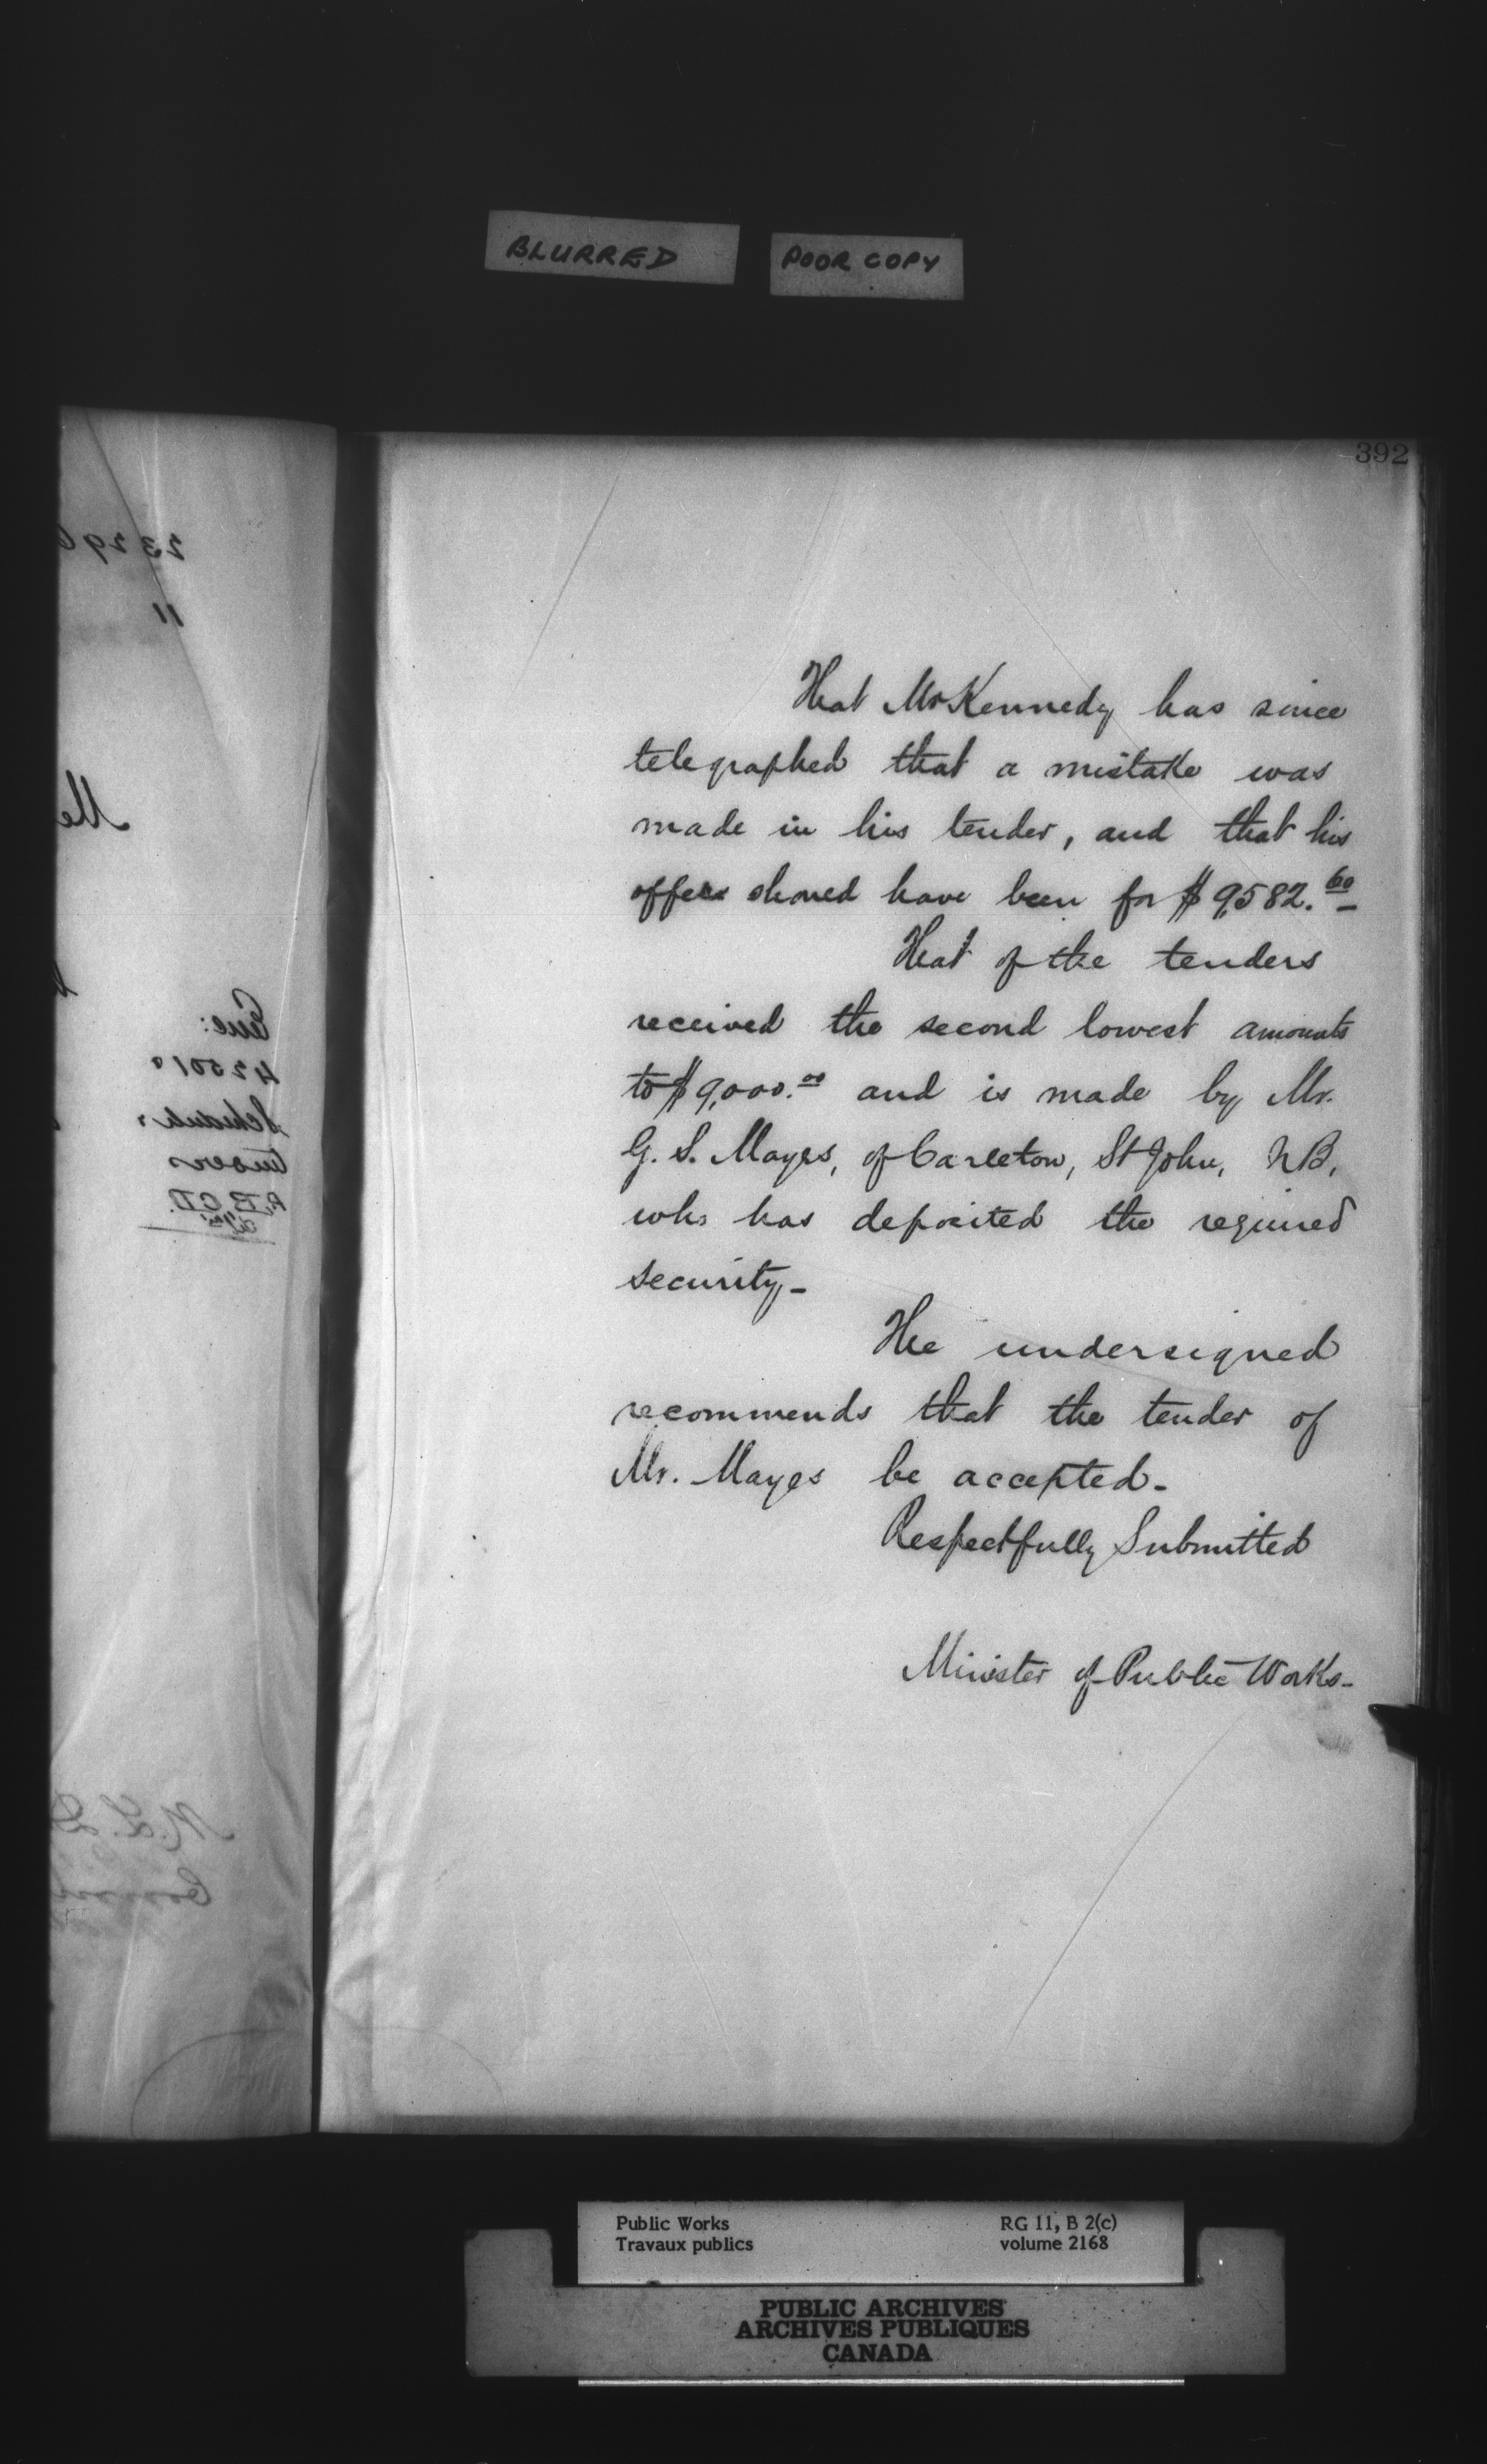 BLURRED
POOR COPY
392
That Mr Kennedy has since
telegraphed that a mistake was
made in his tender, and that his
offer should have been for $9,582.60
That of the tenders
received the second lowest amounts
to $9,000.00 and is made by Mr.
G. S. Mayes, of Carleton, St John, N.B,
who has deposited the required
security-
The undersigned
recommends that the tender of
Mr. Mayes be accepted-
Respectfully Submitted
Minister of Public Works-
Public Works
Travaux publics
RG 11, B 2(c)
volume 2168
PUBLIC ARCHIVES
ARCHIVES PUBLIQUES
CANADA